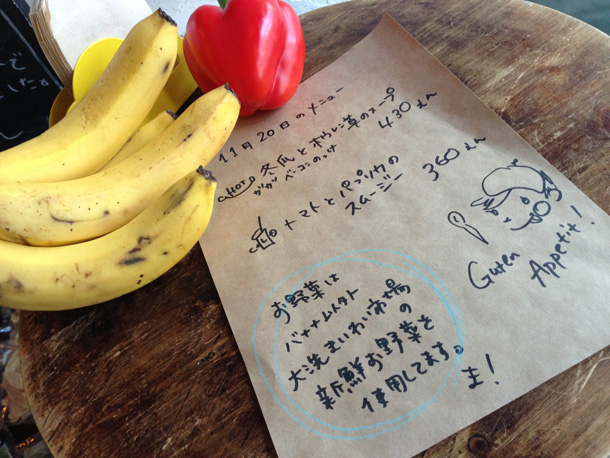 11月20日のメニュー
HOT 冬瓜とホウレン草のスープ 430えん
ガリガリベーコンのっけ
トマトとパプリカの 360えん
スムージー
Guten
Appetit!
お野菜は
バナナムトマト
大洗まいわい市場
の
新鮮お野菜を
使用してます。